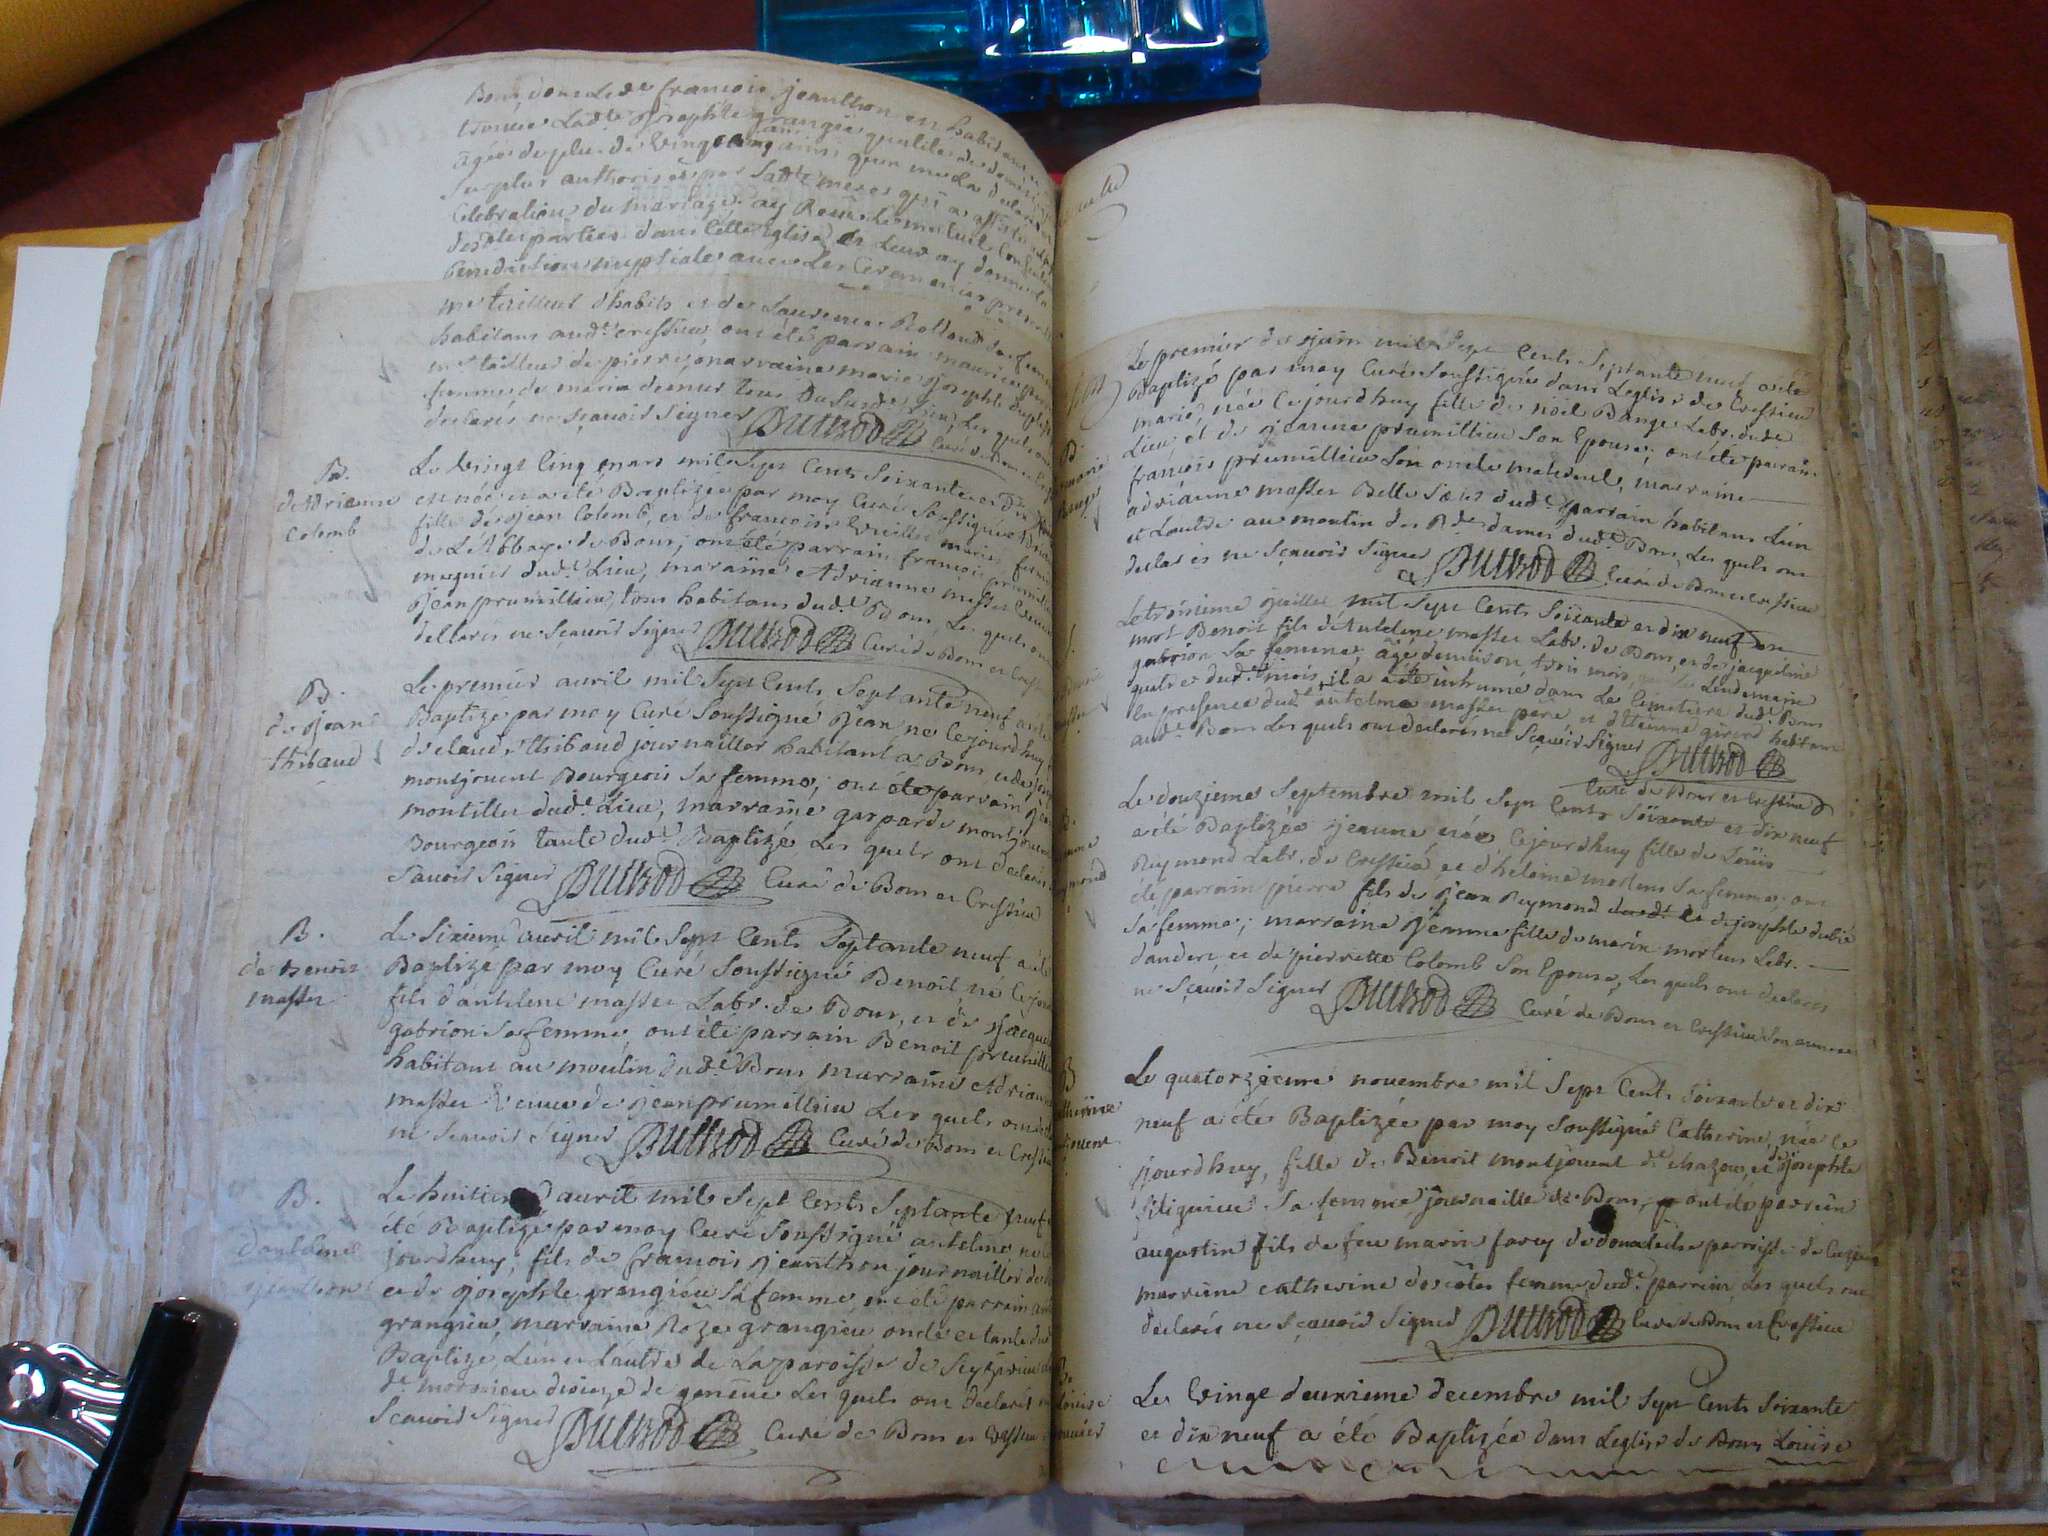 Bons, dont led.t françois jeanthon en habitant
josephte grangieu qualité de domest
agée de plus de vingt cinq ans ainsi
surplus authorisée par sad.te mere qui a assisté
Celebration du mariage. ay Reçu le mutuel Consentem
desd.tes parties dans cette Eglise et Leur ay donné la
Benediction nuptiale avec les Ceremonies
me tailleur d'habits et de Laurence Rolland sa femme
habitans aud.t cressieu, ont été parrain maurice
me tailleur de pierre, marraine marie josephte
femme de marin tous dususd.t Lieu, Les quels ont
declarés ne sçavoir signer Dutrod Curé de Bons et
B.
d'Adrianne
Colomb
Le vingt cinq mars mil Sept Cents Soixante et Dix
est née et a été Baptizée par moy Curé Soussigné
fille de jean Colomb, et de françoise maries
de L'Abbaye de Bons; ont été parrain françois prumillieu
meunier dud.t Lieu, maraine Adrianne masses veuve
jean prumillieu, tous habitans dud.t Bons, Les quels ont
declarés ne sçavoir signer Dutrod Curé de Bons et Cress
B.
de jean
thibaud
Le premier avril mil Sept Cents Septante neuf a été
Baptizé par moy Curé Soussigné jean né cejourdhuy
de claude thibaud journaillier habitant a Bons et de
montjouvent Bourgeois sa femme; ont été parrain jean
montillet dud.t Lieu, marraine gasparde montjouvent
Bourgeois tante dud.t Baptizé Les quels ont declarés
sçavoir signer Dutrod Curé de Bons et Cressieu
B.
de Benoit
masses
Le Sixieme avril mil Sept Cents Septante neuf a été
Baptizé par moy Curé Soussigné Benoit, né cejour
fils d'anthelme masses Labr. de Bons, et de jacqueli
gabrion sa femme, ont été parrain Benoit prumillieu
habitant au moulin dud.t Bons marraine Adrianne
masses veuve de jean prumillieu Les quels ont
ne sçavoir signer Dutrod Curé de Bons et Cressieu
B.
d'anthelme
jeanthon
Le huitieme avril mil Sept Cents Septante neuf
été Baptizé par moy Curé Soussigné anthelme né
jourdhuy, fils de françois jeanthon journaillier de
et de josephte grangieu sa femme, ont été parrain
grangieu, marraine Roze grangieu oncle et tante dud
Baptizé, L'un et L'autre de La paroisse de
de diocese de geneve Les quels ont declarés
Sçavoir signer Dutrod Curé de Bons et Cressieu
B.
marie
Bange
Le premier de juin mil Sept Cents Septante neuf a été
Baptizé par moy Curé Soussigné dans L'eglise de Cressieu
marie, née cejourdhuy fille de noel Bange Labr. dud.t
Lieu, et de jeanne prumillieu son Epouse; ont été parrain
françois prumillieu son oncle maternel, marraine
adrianne masses Belle Sœur dud.t parrain habitans L'un
et L'autre au moulin des R.des dames dud.t Bons, Les quels ont
declarés ne sçavoir signer Dutrod Curé de Bons et Cressieu
Le troisieme juillet mil Sept Cents Soixante et dix neuf est
mort Benoit fils d'Anthelme masses Labr. de Bons, et de jacqueline
gabrion sa femme, agé d'environ trois mois, Lendemain
quatre dud.t mois, il a été inhumé dans Le Cimetiere dud.t Bons
en presence dud.t antelme masses pere et d'Etienne girerd habitans
aud.t Bons Les quels ont declarés ne sçavoir signer Dutrod
Curé de Bons et Cressieu
Le douzieme Septembre mil Sept Cents Soixante et dix neuf
a été Baptizée jeanne, née cejourdhuy fille de Louis
Reymond Labr. de Cressieu, et d'heleine mortens sa femme, ont
été parrain pierre fils de jean Reymond et de josephte dubié
sa femme; marraine jeanne fille de marin mortens Labr.
d'andert, et de pierrette Colomb son Epouse, Les quels ont declarés
ne sçavoir signer Dutrod Curé de Bons et Cressieu son annexe
B
Le quatorzieme novembre mil Sept Cents Soixante et dix
neuf a été Baptizée par moy Soussigné Catherine, née ce
jourdhuy, fille de Benoit montjouvent de chazou, et de josephte
sa femme journaillé de Bons, ont été parrein
augustin fils de feu marin farcy de paroisse de
marreine catherine descôtes femme dud.t parrein Les quels ont
declarés ne sçavoir signer Dutrod Curé de Bons et Cressieu
Le vingt deuxieme decembre mil Sept Cents Soixante
et dix neuf a été Baptizée dans L'eglise de Bons Louise